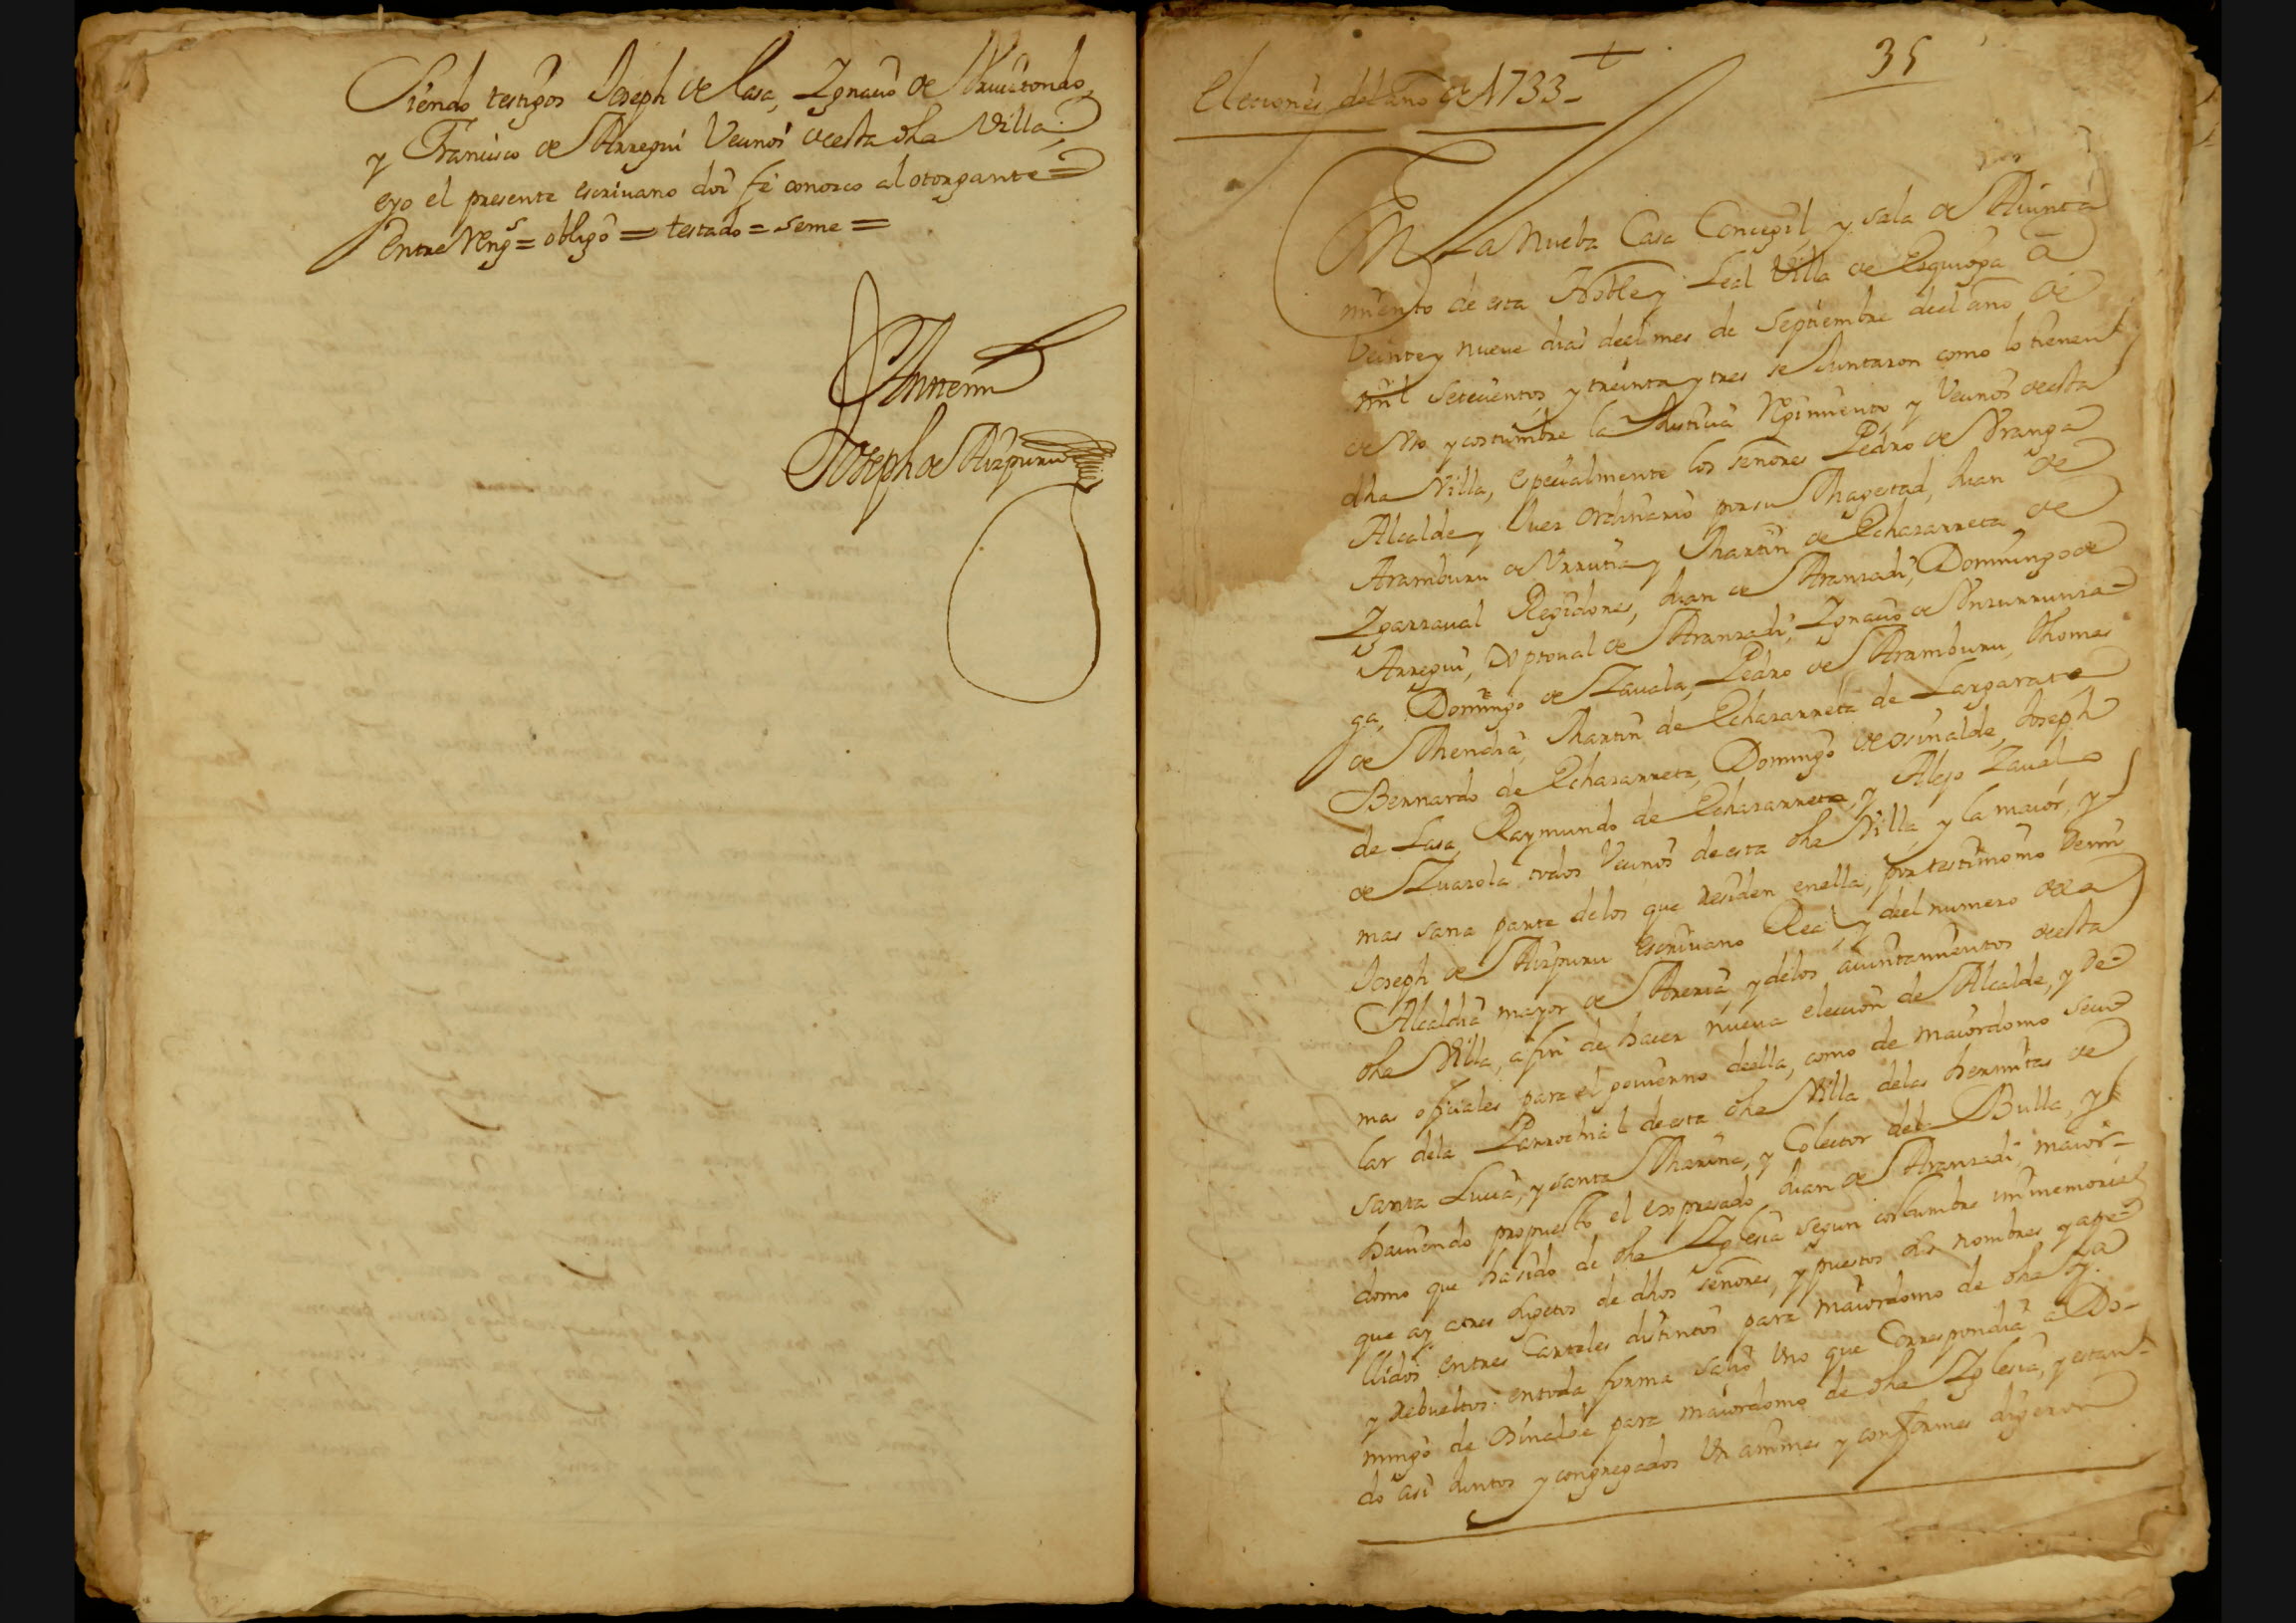 Siendo testigos Joseph de Lasa, Ygnacio de
y Francisco de Arregui Vecinos de esta dha Villa;
eyo el presente escrivano doi fé conozco al otorgante =
Entre Reng.s = obligó = testado = seme =
Antemi
Joseph de Aizpuru
Elecciones del año de 1733 -
35
En La Nueba Casa Concegil, y sala de Aiunta
miento de esta Noble y Leal Villa de Ezquioga â
Veinte y nueve dias deel mes de Septiembre deel año de
mil Setecientos y treinta y tres se Juntaron como lo tienen
de Vso y costumbre la Justicia Regimiento, y Vecinos de esta
dha Villa, especialmente los señores Pedro de Vranga
Alcalde y Juez ordinario por su Magestad, Juan de
Aramburu de Vrrutia y Martin de Echazarreta de
Ygarzaval Regidores, Juan de Aranzadi, Domingo de
Arregui, Xptoval de Aranzadi, Ygnacio de Inzurrunza-
ga, Domingo de Zavala, Pedro de Aramburu, Thomas
de Mendia, Martin de Echazarreta de Largarate
Bernardo de Echazarreta, Domingo de osinalde, Joseph
de Lasa, Raymundo de Echazarreta, y Alejo Zavalo
de Zuazola todos Vecinos de esta dha Villa, y la maior, y
mas sana parte delos que residen enella, por testimonio de mi
Joseph de Aizpuru escrivano Real y deel numero dela
Alcaldia mayor de Areria, y delos aiuntamientos de esta
dha Villa, afin de hacer nueva eleccion de Alcalde, y de
mas oficiales para el govierno deella, como de maiordomo secu
lar dela Parrochial de esta dha Villa delas hermitas de
santa Lucia, y santa Marina, y Colector dela Bulla, y
haviendo propuesto el expresado Juan de Aranzadi maior-
domo que hasido de dha Yglesia segun costumbre immemorial
que ay atres sugetos de dhos señores, y puestos sus nombres y ape-
llidos entres Carteles distintos para maiordomo de dha Yg.a
y rebueltos entoda forma salió Vno que Correspondia â Do-
mingo de Osinalde para maiordomo de dha Yglesia, y estan-
do asi Juntos y congregados Vnanimes y conformes digeron